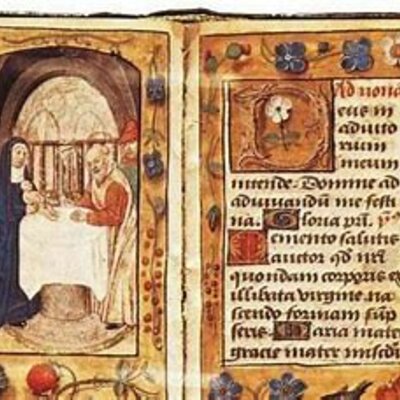 Ad nona
eus in
adiuto
rium
meum
intende. Domine ad
adiuvandū me festi
na. Gloria pri. p
emento salutis
auctor qd nri
quondam corporis ex
illibata virgine na
scendo formam sūp
seris. Maria mater
gracie mater miscdie